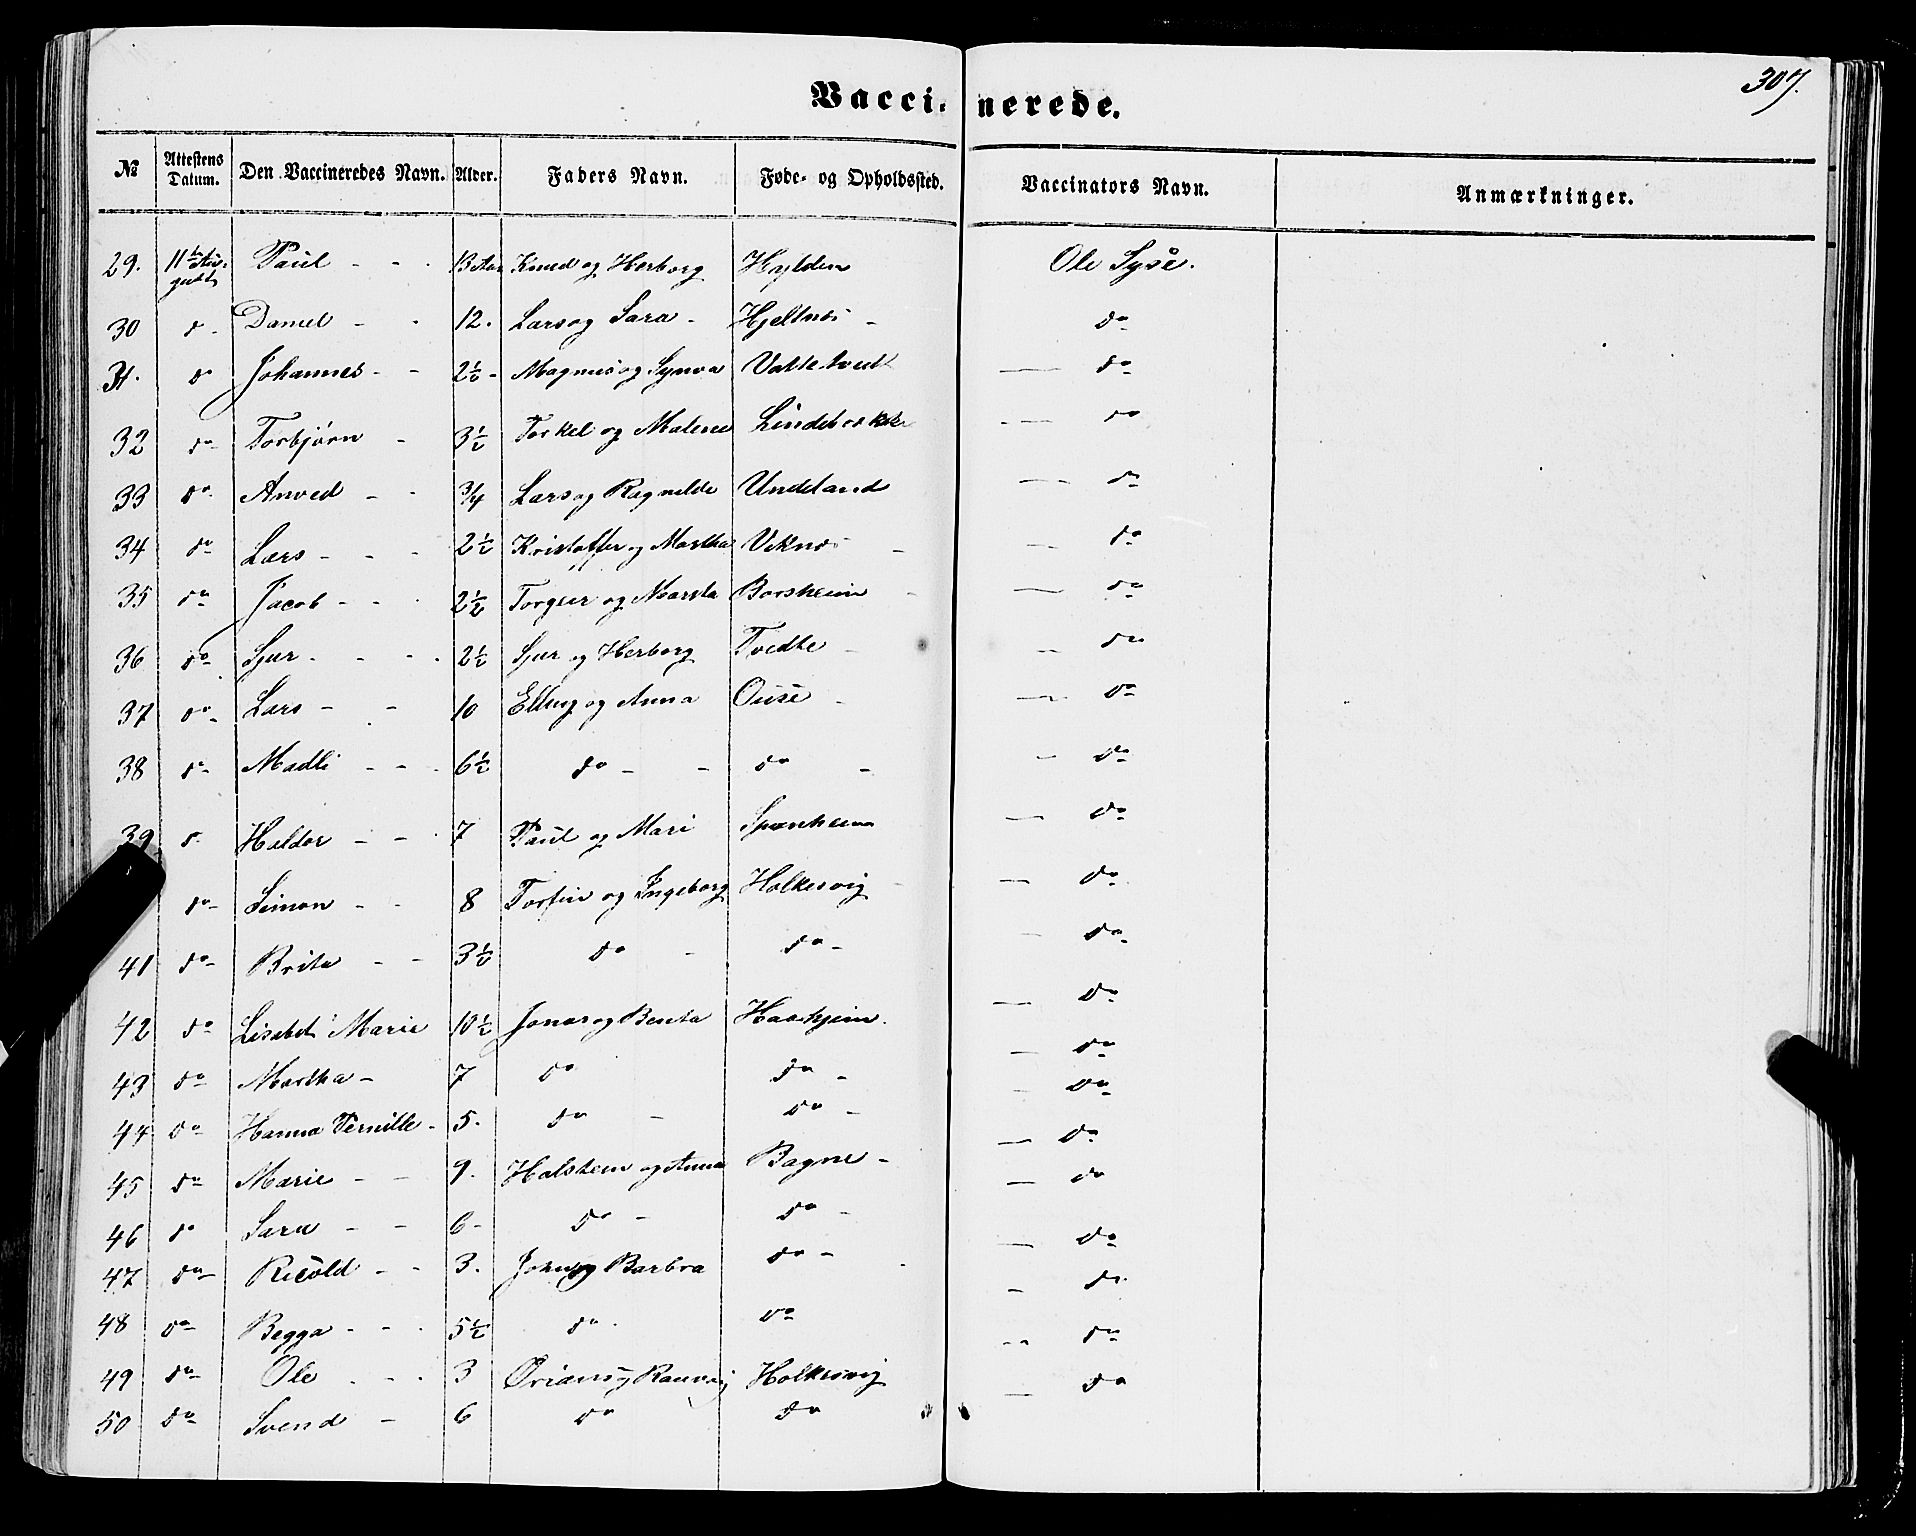 307.
Vaccinerede.
№ Attestens Datum. Den Vaccineredes Navn. Alder. Faders Navn. Føde- og Opholdssted. Vaccinators Navn. Anmærkninger.
29. 11te August Paul - - - 13 Aar Knud og Herborg Hylden Ole Syse.
30 do - Daniel - - 12. Lars og Sara - Hjeltnæs - do
31. do Johannes - - 2½ - Magnus og Synva Vattetvedt — do
32 do Torbjørn - 3½ Torkel og Malene Lindebrække — do
33 do Anved - - 3/4 Lars og Ragnilde Undeland — do
34 do Lars - - - 2½ Kristoffer og Martha Viknæs - — do
35 do Jacob - - - 2½ Torgeir og Marita Borsheim - — do
36 do Sjur - - - 2½ Sjur og Herborg Tvedte - — do
37 do Lars - - 10 Elling og Anna Ouse - — do
38 do Madli - - - 6½ do - - do - — do
39 do Haldor - - 7 Paul og Mari Spanheim — do
do Simon - - 8 Torfin og Ingeborg Holkesvig - — do
41 do Brita - - 3½ do - do - - do
42 do Lisabet Marie 10½ Jonas og Benta Haaheim. — do
43 do Martha - 7 do do - — do
44 do Hanna Pernille - 5. do - do - — do
45 do Marie - - 9. Halstein og Anna Bagne - — do
46 do Sara - - 6 - do - do - — do
47 do Ricold - - 3. John og Barbra do - — do
48 do Begga - - - 5½ do - do - do
49 do Ole - - - 3 Ørians og Ranveig Holkesvig - do
50 do Svend - 6 do do — do